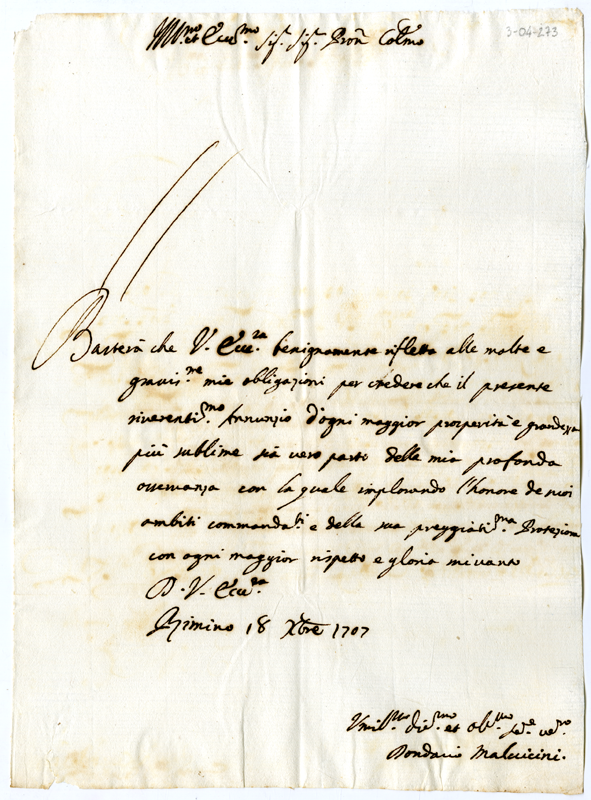 Ill.mo et Ecc.mo Sig.r Sig.r Pron Colmo
3-04-273
Basterà che V. Ecc.za benignamente rifletta alle molte e
gravis.me mie obligazioni per credere che il presente
riverentis.mo Annunzio d'ogni maggior prosperità e grandezza
più sublime sia vero parto della mia profonda
osservanza con la quale implorando l'honore de suoi
ambiti commanda.ti e della sua preggiatis.ma Protezione
con ogni maggior rispetto e gloria mi vanto
D. V. Ecc.za
Rimino 18 Xbre 1707
Vmil.mo di.mo et ob.mo se.e ve.ro
Malvicini.